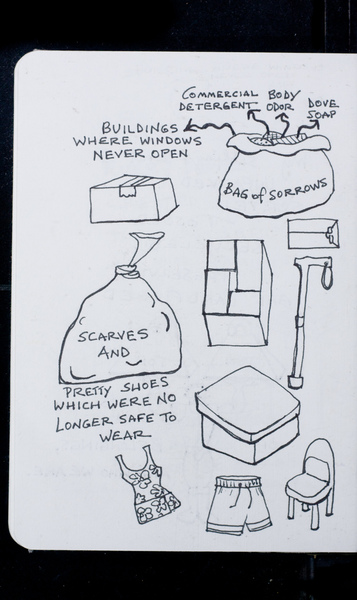 COMMERCIAL
DETERGENT
BODY
ODOR
DOVE
SOAP
BUILDINGS
WHERE WINDOWS
NEVER OPEN
BAG of SORROWS
SCARVES
AND
PRETTY SHOES
WHICH WERE NO
LONGER SAFE TO
WEAR